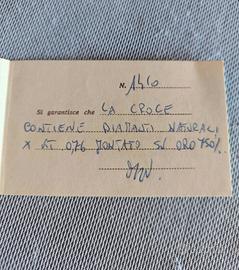 N. 1410
Si garantisce che LA CROCE
CONTIENE DIAMANTI NATURALI
X KT 0,76 MONTATO SU ORO 750%.